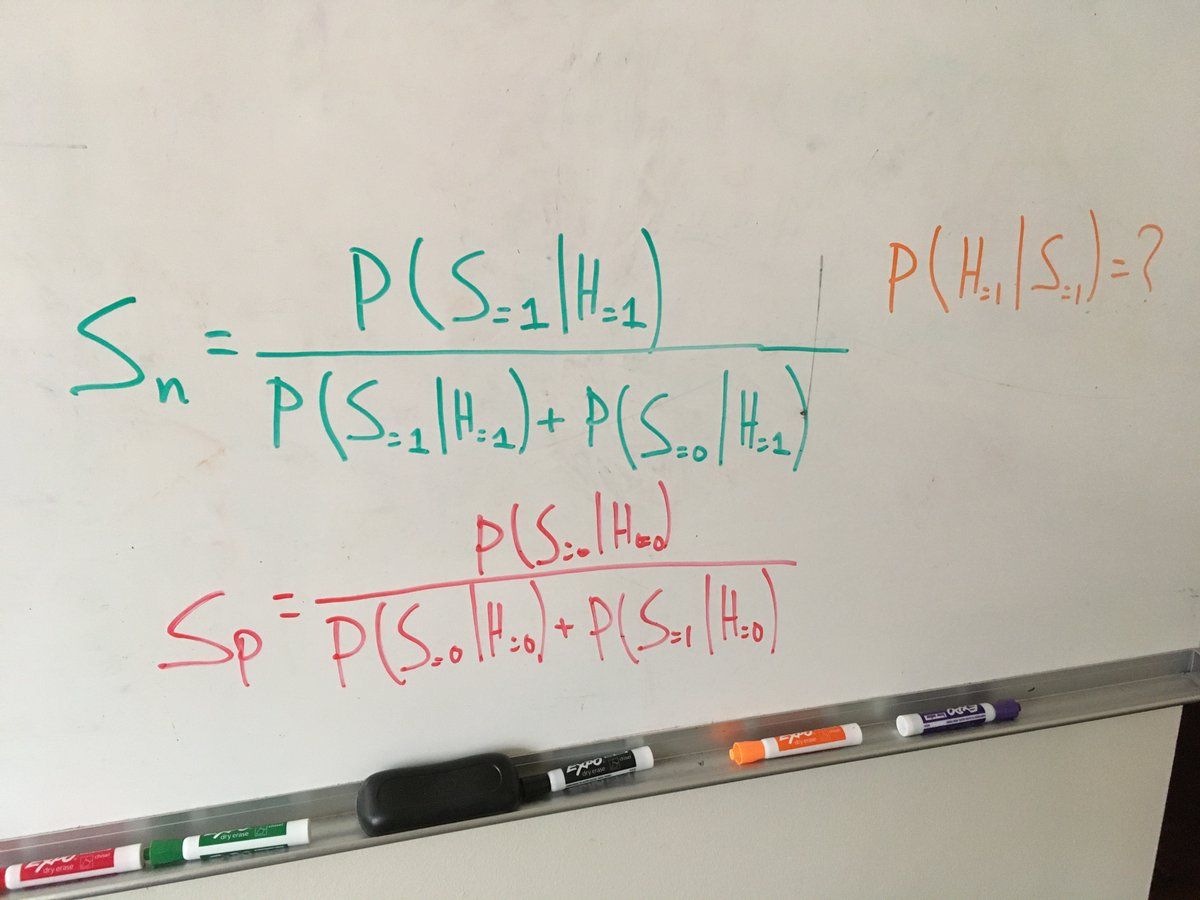 Sn = P(S=1|H=1) / P(S=1|H=1) + P(S=0|H=1)
P(H=1|S=1) = ?
Sp = P(S=0|H=0) / P(S=0|H=0) + P(S=1|H=0)
EXPO
dry erase
chisel
dry erase
chisel
EXPO
dry erase
EXPO
dry erase
EXPO